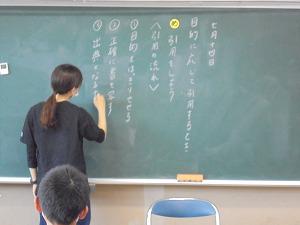 七月十四日
目的に応じて引用するとき
め 引用をしよう
＜引用の流れ＞
①目的をはっきりさせる
②正確に書き写す
③出典となる